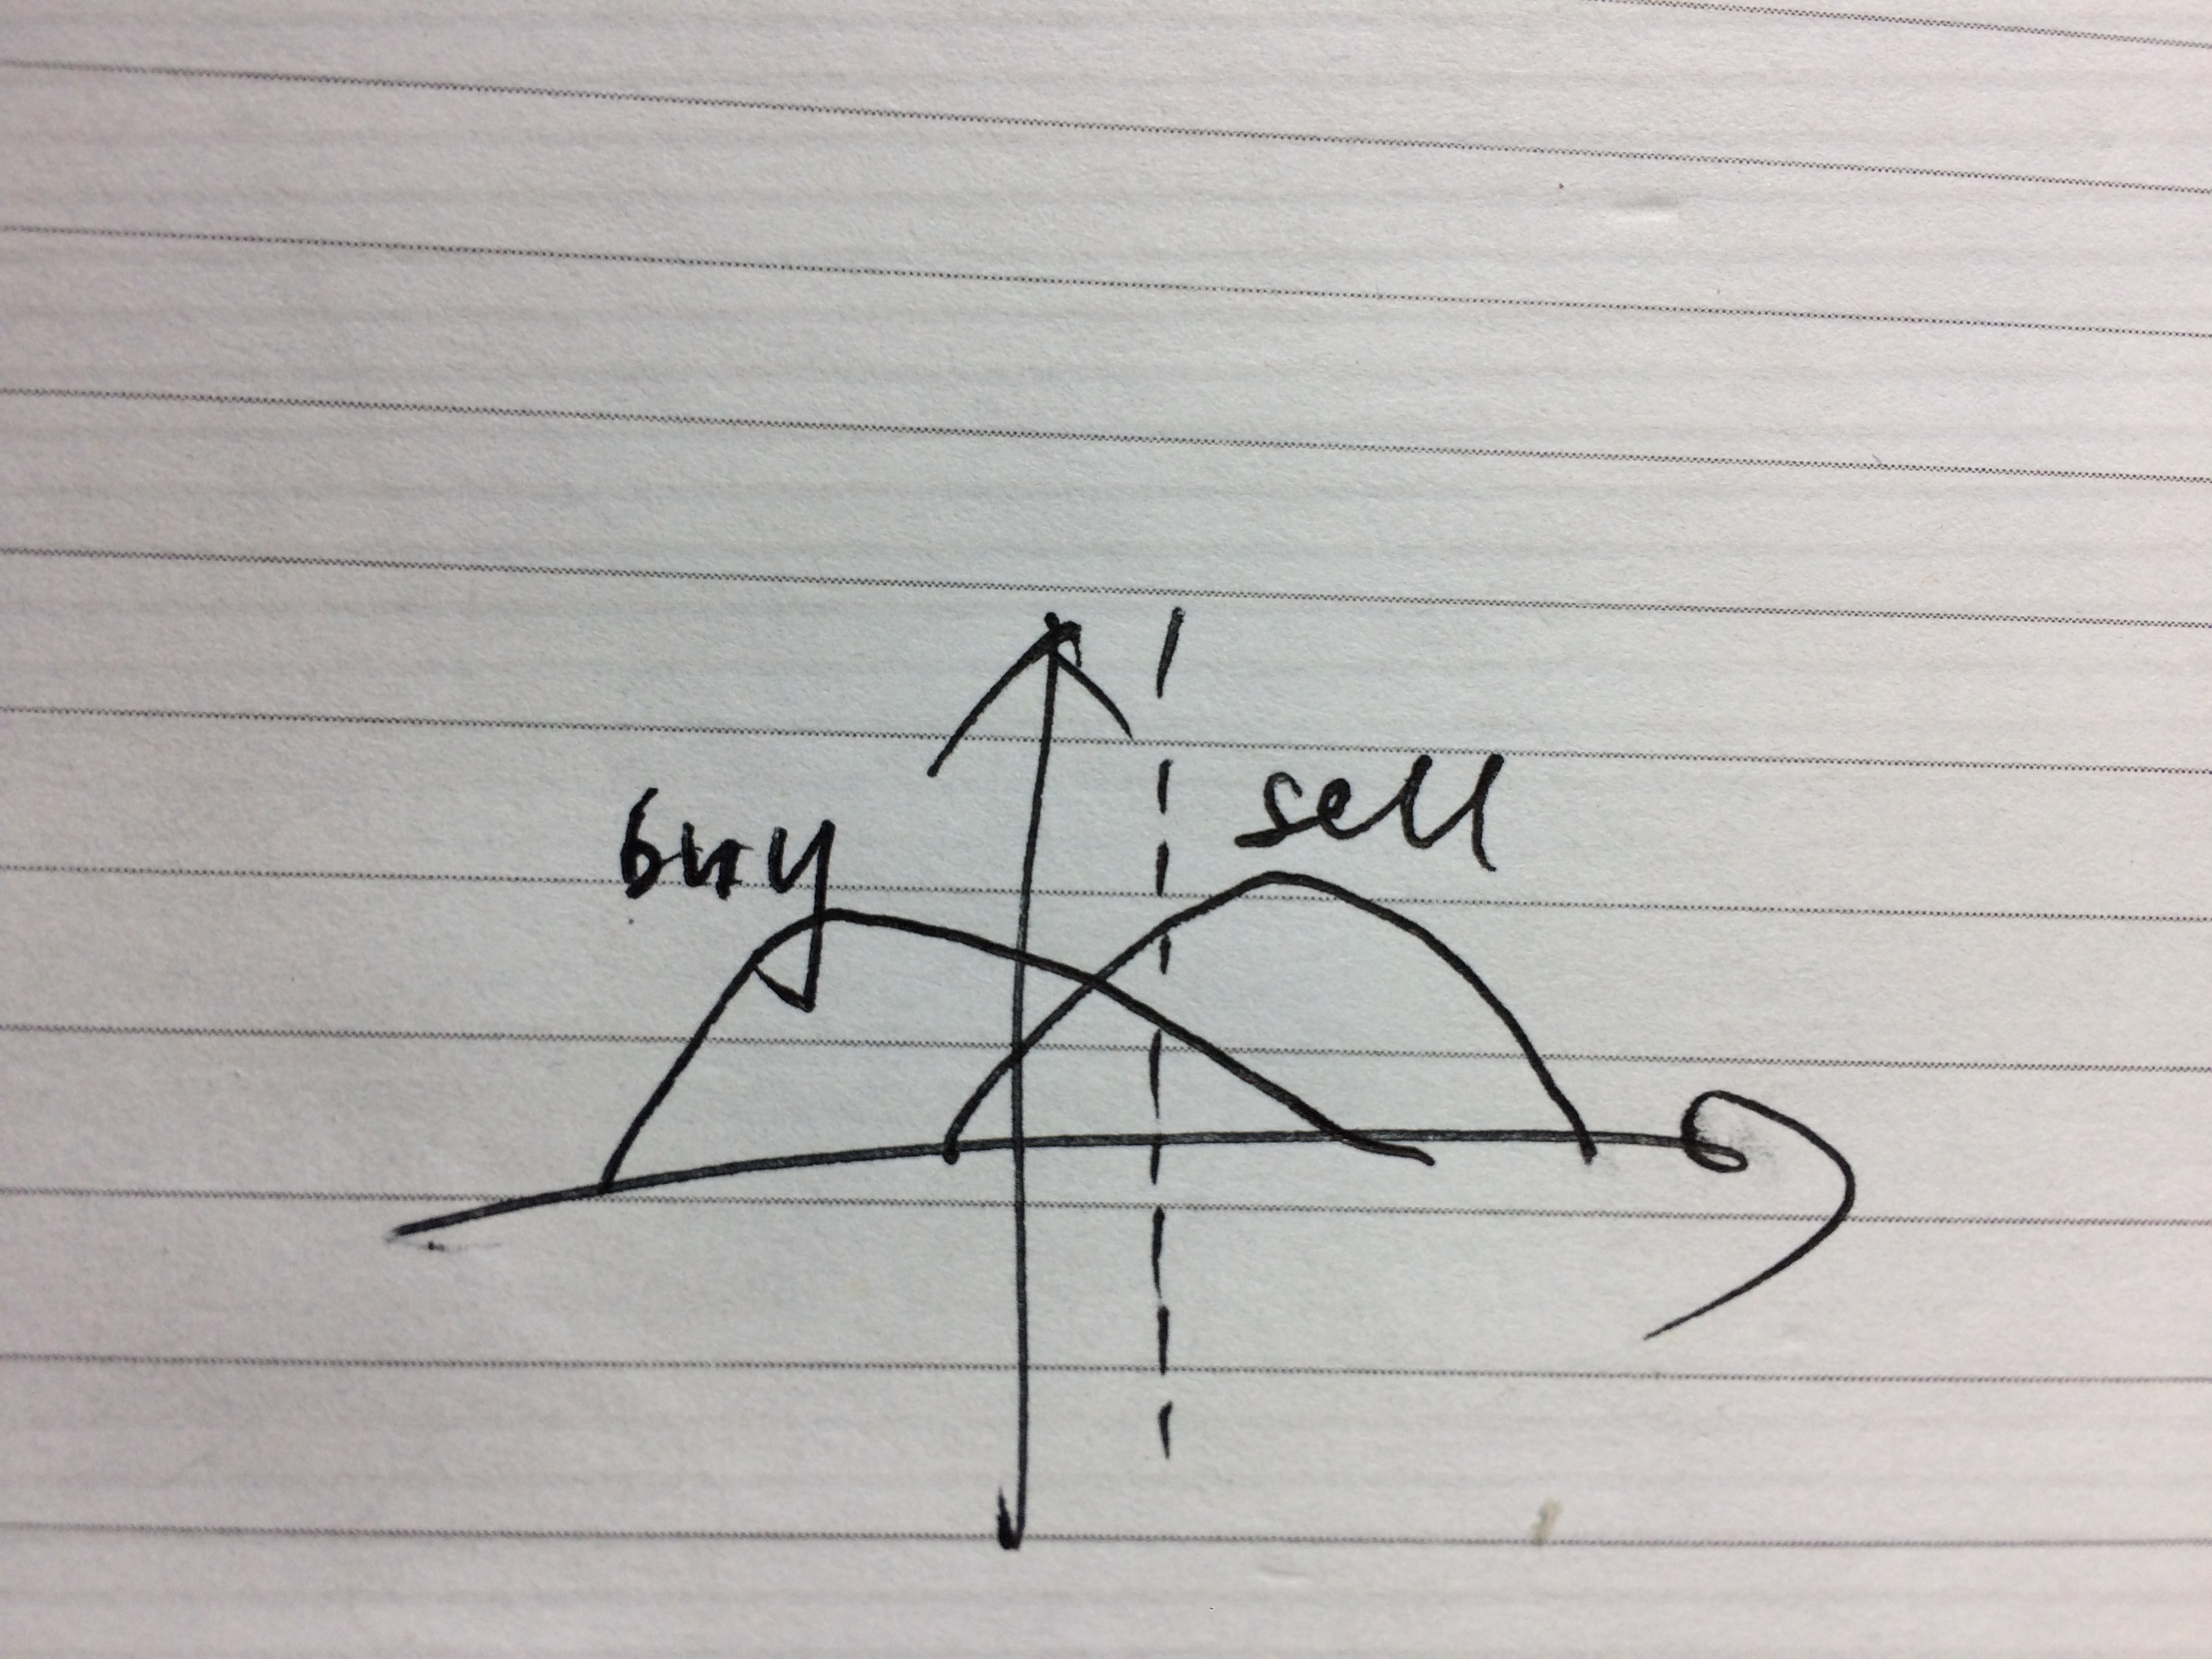 buy
sell